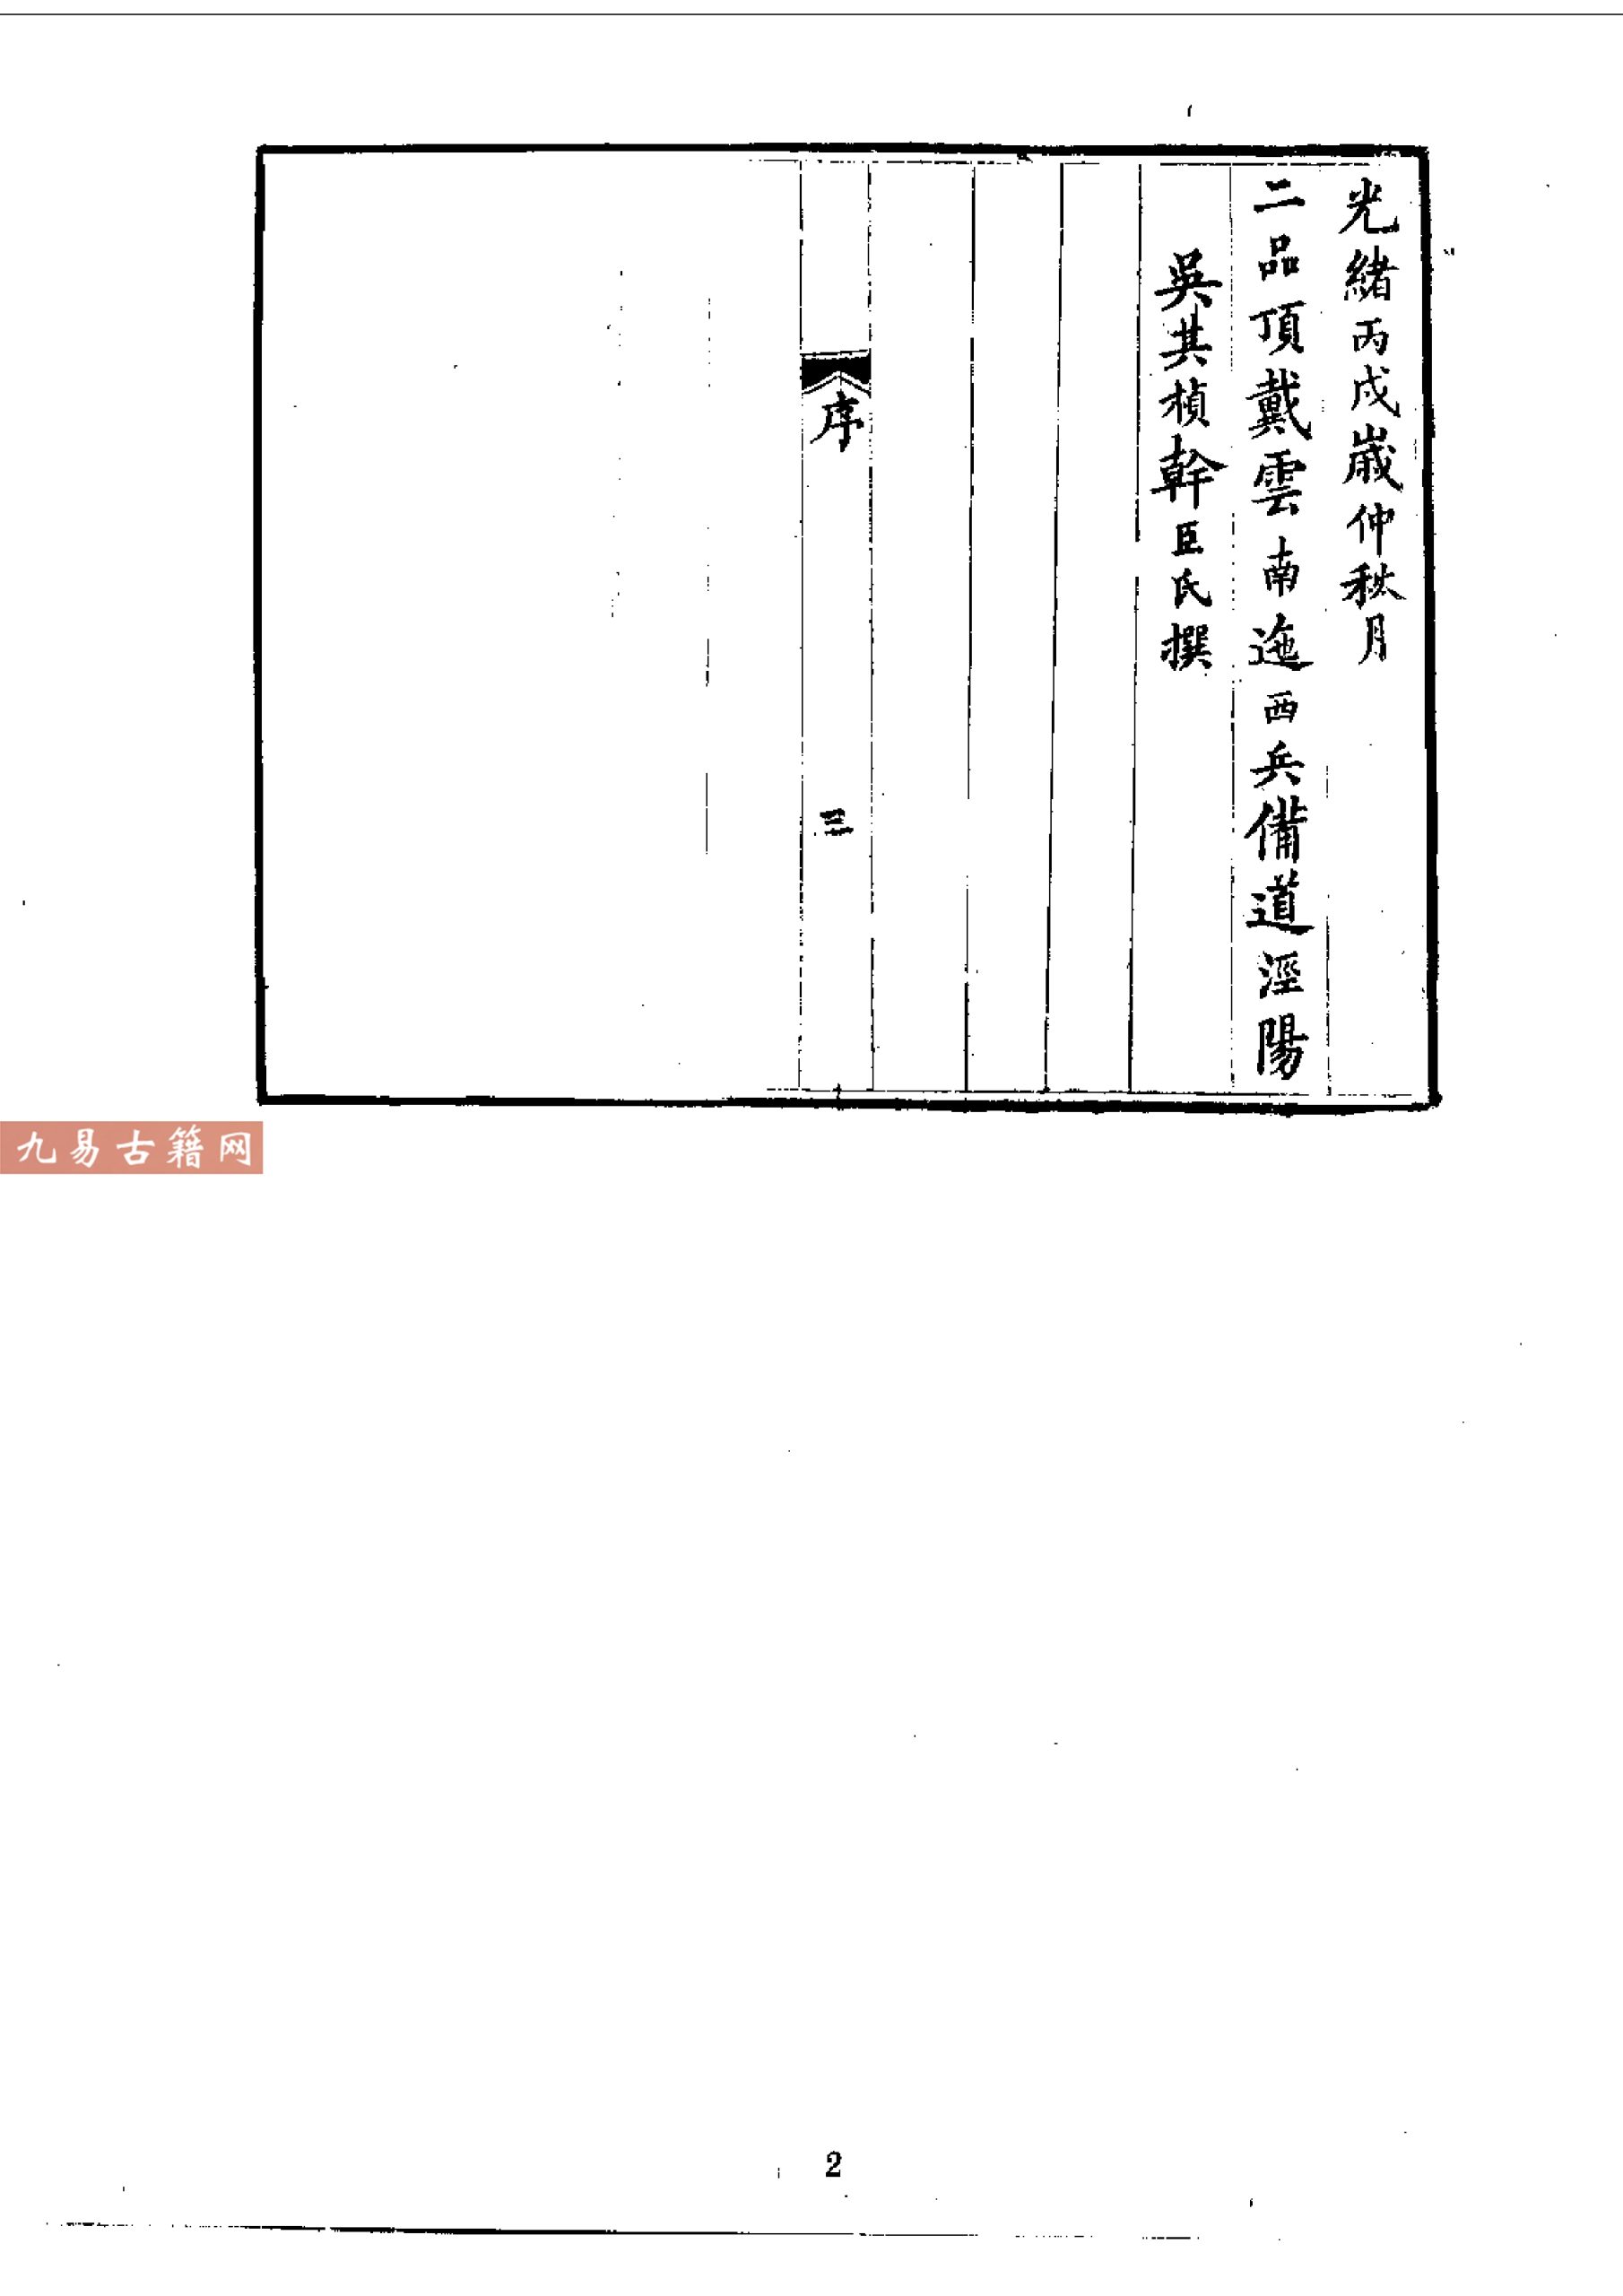 光緒丙戌嵗仲秋月
二品頂戴雲南迤西兵備道涇陽
吳其楨幹臣氏撰
序
三
九易古籍网
2